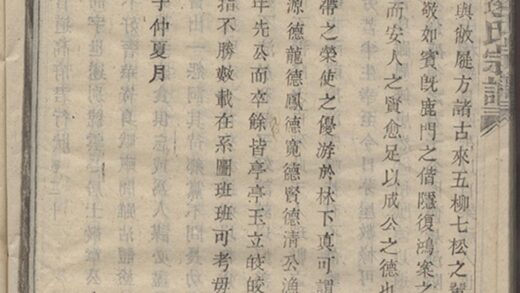 氏宗譜
與敝屣方諸古來五柳七松之
敬如賓旣鹿門之偕隱復鴻案之
而安人之賢愈足以成公之德也
帶之榮使之優游於林下眞可謂
源德龍德鳳德寬德賢德清公漁
年先公而卒餘皆亭亭玉立皎皎
指不勝數載在系圖班班可考毋
子仲夏月